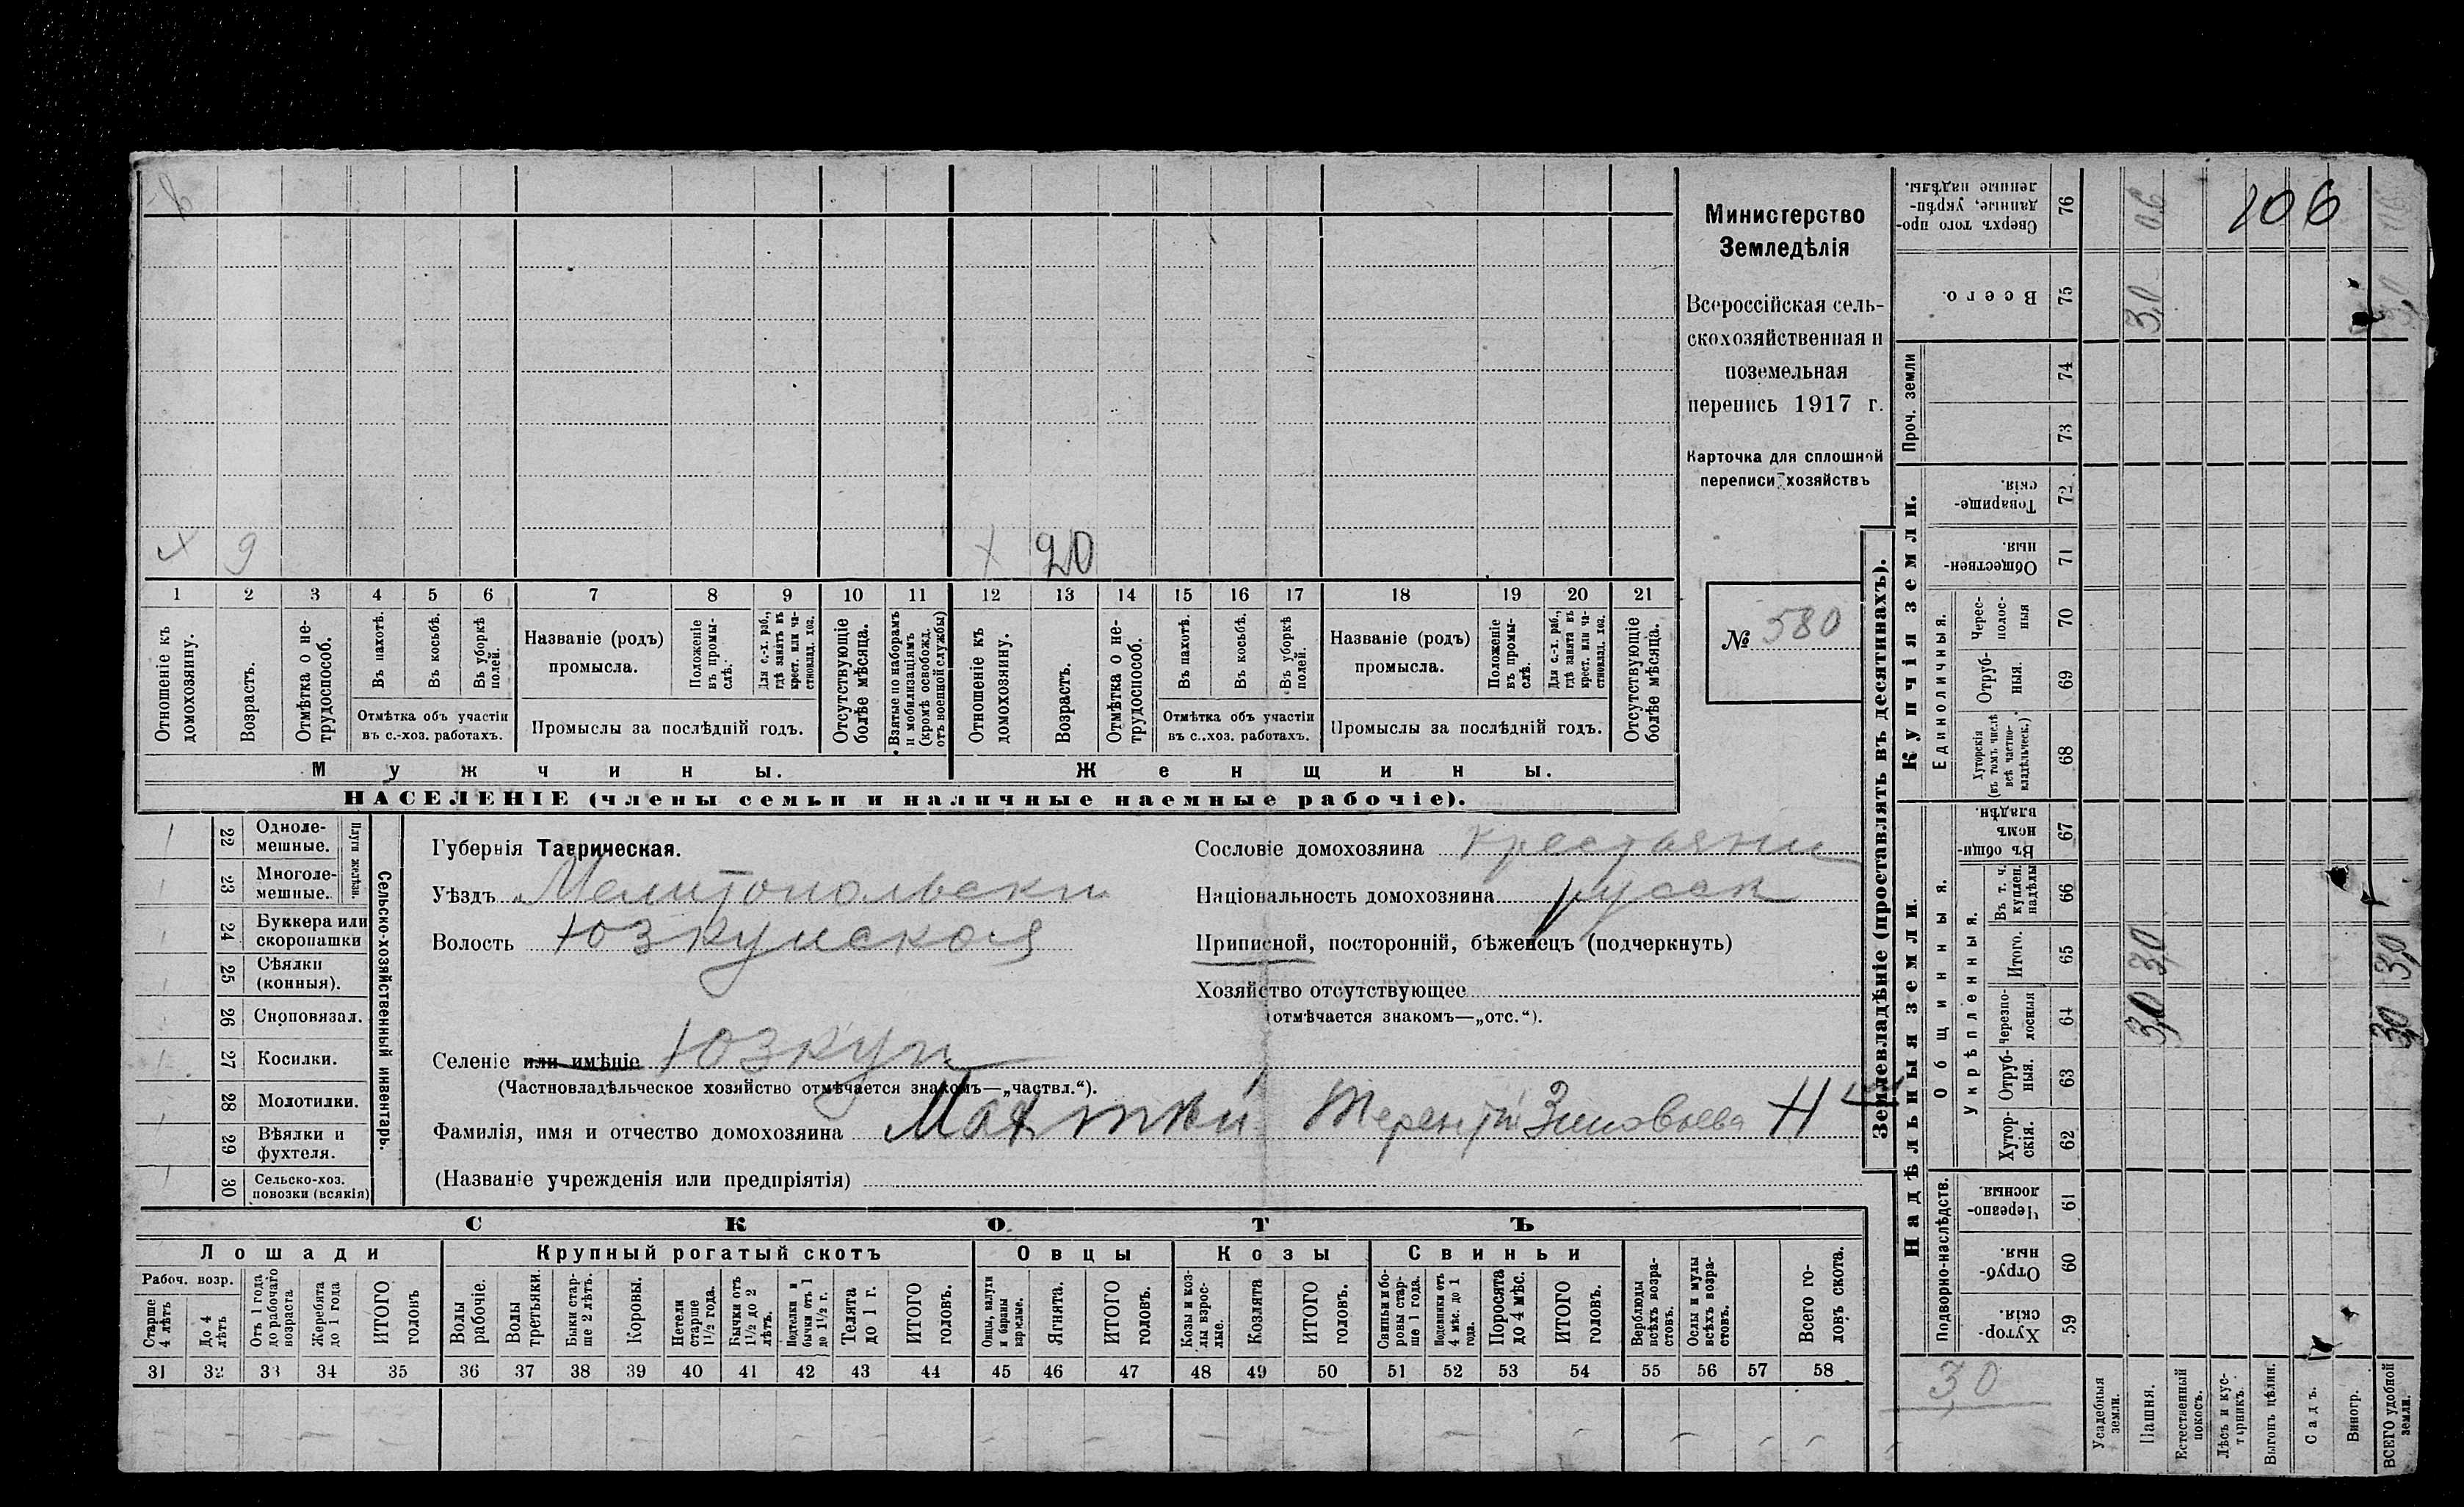 106
Министерство
Земледѣлія
Всероссійская сель-
скохозяйственная и
поземельная
перепись 1917 г.
Карточка для сплошной
переписи хозяйствъ
№ 580
х 9
х 20
1 2 3 4 5 6 7 8 9 10 11 12 13 14 15 16 17 18 19 20 21
Отношеніе къ домохозяину.
Возрастъ.
Отмѣтка о не-трудоспособ.
Въ пахотѣ.
Въ косьбѣ.
Въ уборкѣ полей.
Отмѣтка объ участіи
въ с.-хоз. работахъ.
Названіе (родъ)
промысла.
Положеніе въ промы-слѣ.
Для с.-х. раб., гдѣ занятъ въ крест. или ча-стновлад. хоз.
Промыслы за послѣдній годъ.
Отсутствующіе болѣе мѣсяца.
Взятые по наборамъ и мобилизаціямъ (кромѣ освобожд. отъ военной службы)
Отношеніе къ домохозяину.
Возрастъ.
Отмѣтка о не-трудоспособ.
Въ пахотѣ.
Въ косьбѣ.
Въ уборкѣ полей.
Отмѣтка объ участіи
въ с..хоз. работахъ.
Названіе (родъ)
промысла.
Положеніе въ промы-слѣ.
Для с.-х. раб., гдѣ занята въ крест. или ча-стновлад. хоз.
Промыслы за послѣдній годъ.
Отсутствующіе болѣе мѣсяца.
Мужчины.
Женщины.
НАСЕЛЕНІЕ (члены семьи и наличные наемные рабочіе).
22 Одноле-мешные.
23 Многоле-мешные.
Плуги желѣзн.
24 Буккера или скоропашки
25 Сѣялки (конныя).
26 Сноповязал.
27 Косилки.
28 Молотилки.
29 Вѣялки и фухтеля.
30 Сельско-хоз. повозки (всякія)
Сельско-хозяйственный инвентарь.
Губернія Таврическая.
Уѣздъ Мелитопольски
Волость Юзкуйская
Селеніе или имѣніе Юзкуи
(Частновладѣльческое хозяйство отмѣчается знакомъ—„частвл.“).
Фамилія, имя и отчество домохозяина Терентій Зиновьевъ
(Названіе учрежденія или предпріятія)
Сословіе домохозяина крестьянин
Національность домохозяина русск
Приписной, посторонній, бѣженецъ (подчеркнуть)
Хозяйство отсутствующее
(отмѣчается знакомъ—„отс.“).
СКОТЪ
Лошади
Крупный рогатый скотъ
Овцы
Козы
Свиньи
Рабоч. возр.
Старше 4 лѣтъ
До 4 лѣтъ
Отъ 1 года до рабочаго возраста
Жеребята до 1 года
ИТОГО головъ
Волы рабочіе.
Волы третьяки.
Быки стар-ше 2 лѣтъ.
Коровы.
Нетели старше 1½ года.
Бычки отъ 1½ до 2 лѣтъ.
Подтелки и бычки отъ 1 до 1½ г.
Телята до 1 г.
ИТОГО головъ.
Овцы, валухи и бараны взрослые.
Ягнята.
ИТОГО головъ.
Козы и коз-лы взрос-лые.
Козлята
ИТОГО головъ.
Свиньи и бо-ровы стар-ше 1 года.
Подсвинки отъ 4 мѣс. до 1 года.
Поросята до 4 мѣс.
ИТОГО головъ.
Верблюды всѣхъ возра-стовъ.
Ослы и мулы всѣхъ возра-стовъ.
Всего го-ловъ скота.
31 32 33 34 35 36 37 38 39 40 41 42 43 44 45 46 47 48 49 50 51 52 53 54 55 56 57 58
Землевладѣніе (проставлять въ десятинахъ).
Надѣльныя земли.
Купчія земли.
Проч. земли
Подворно-наслѣдств.
Общинныя.
Укрѣпленныя.
Единоличныя.
Сверхъ того про-данные, укрѣп-ленные надѣлы. 76 0,6
Всего. 75 3,0 3,0
74
73
Товарище-скія. 72
Обществен-ныя. 71
Черес-полос-ныя 70
Отруб-ныя. 69
Хуторскія (въ томъ числѣ всѣ частно-владѣльческ.) 68
Въ общин-номъ владѣн. 67
Въ т. ч. куплен. надѣлы 66
Итого. 65 3,0 3,0
Черезпо-лосныя 64 3,0 3,0
Отруб-ныя. 63
Хутор-скія. 62
Черезпо-лосныя. 61
Отруб-ныя. 60
Хутор-скія. 59
3,0
Усадебныя земли.
Пашня.
Естественный покосъ.
Лѣсъ и кус-тарникъ.
Выгонъ цѣлин.
Садъ.
Виногр.
ВСЕГО удобной земли.